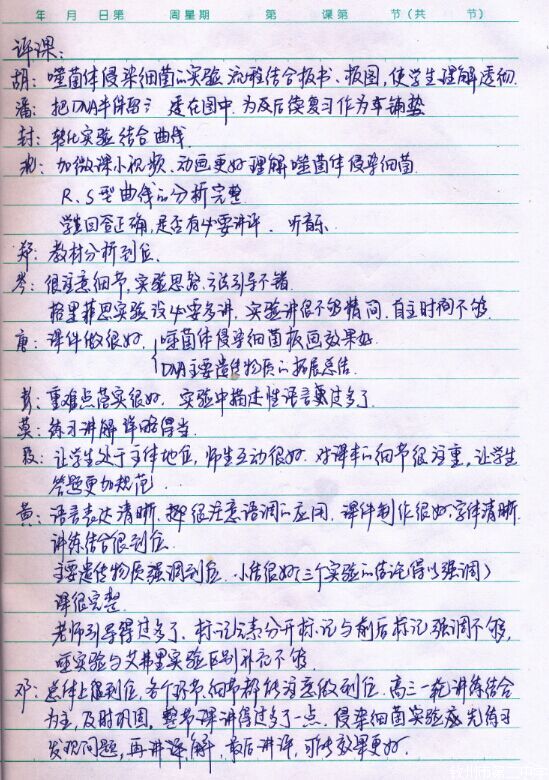 年 月 日 第 周星期 第 课第 节(共 节)
评课:
胡: 噬菌体侵染细菌的实验 流程结合板书、板图, 使学生理解透彻.
潘: 把DNA半保留 在图中. 为及后续复习作为车铺垫
封: 转化实验 结合曲线.
加微课小视频、动画更好理解噬菌体侵染细菌
R、S型曲线的分析完整.
学生回答正确, 是否有必要讲评. 听音乐.
郑: 教材分析到位.
岑: 很注意细节, 实验思路、方法引导不错
格里菲思实验没必要多讲, 实验讲很不够精简. 自主时间不够.
唐: 课件做很好. 噬菌体侵染细菌板画效果好.
DNA主要遗传物质的拓展总结.
彭: 重难点落实很好, 实验中描述性语言更过多了
莫: 练习讲解详略得当.
让学生处于主体地位, 师生互动很好. 对课本的细节很注重, 让学生
答题更加规范.
黄: 语言表达清晰, 很注意语调的应用, 课件制作很好, 字体清晰.
讲练结合很到位.
主要遗传物质强调到位. 小结很好(三个实验的结论得以强调)
课很完整.
老师引导得过多了. 标记元素分开标记与前后标记强调不够,
噬实验与艾弗里实验区别补充不够.
邓: 总体上很到位, 各个环节细节都能注意做到位. 高三一轮讲练结合
为主, 及时巩固, 整节课讲得过多了一点. 侵染细菌实验应先练习
发现问题, 再讲课, 解, 最后讲评, 可能效果更好.